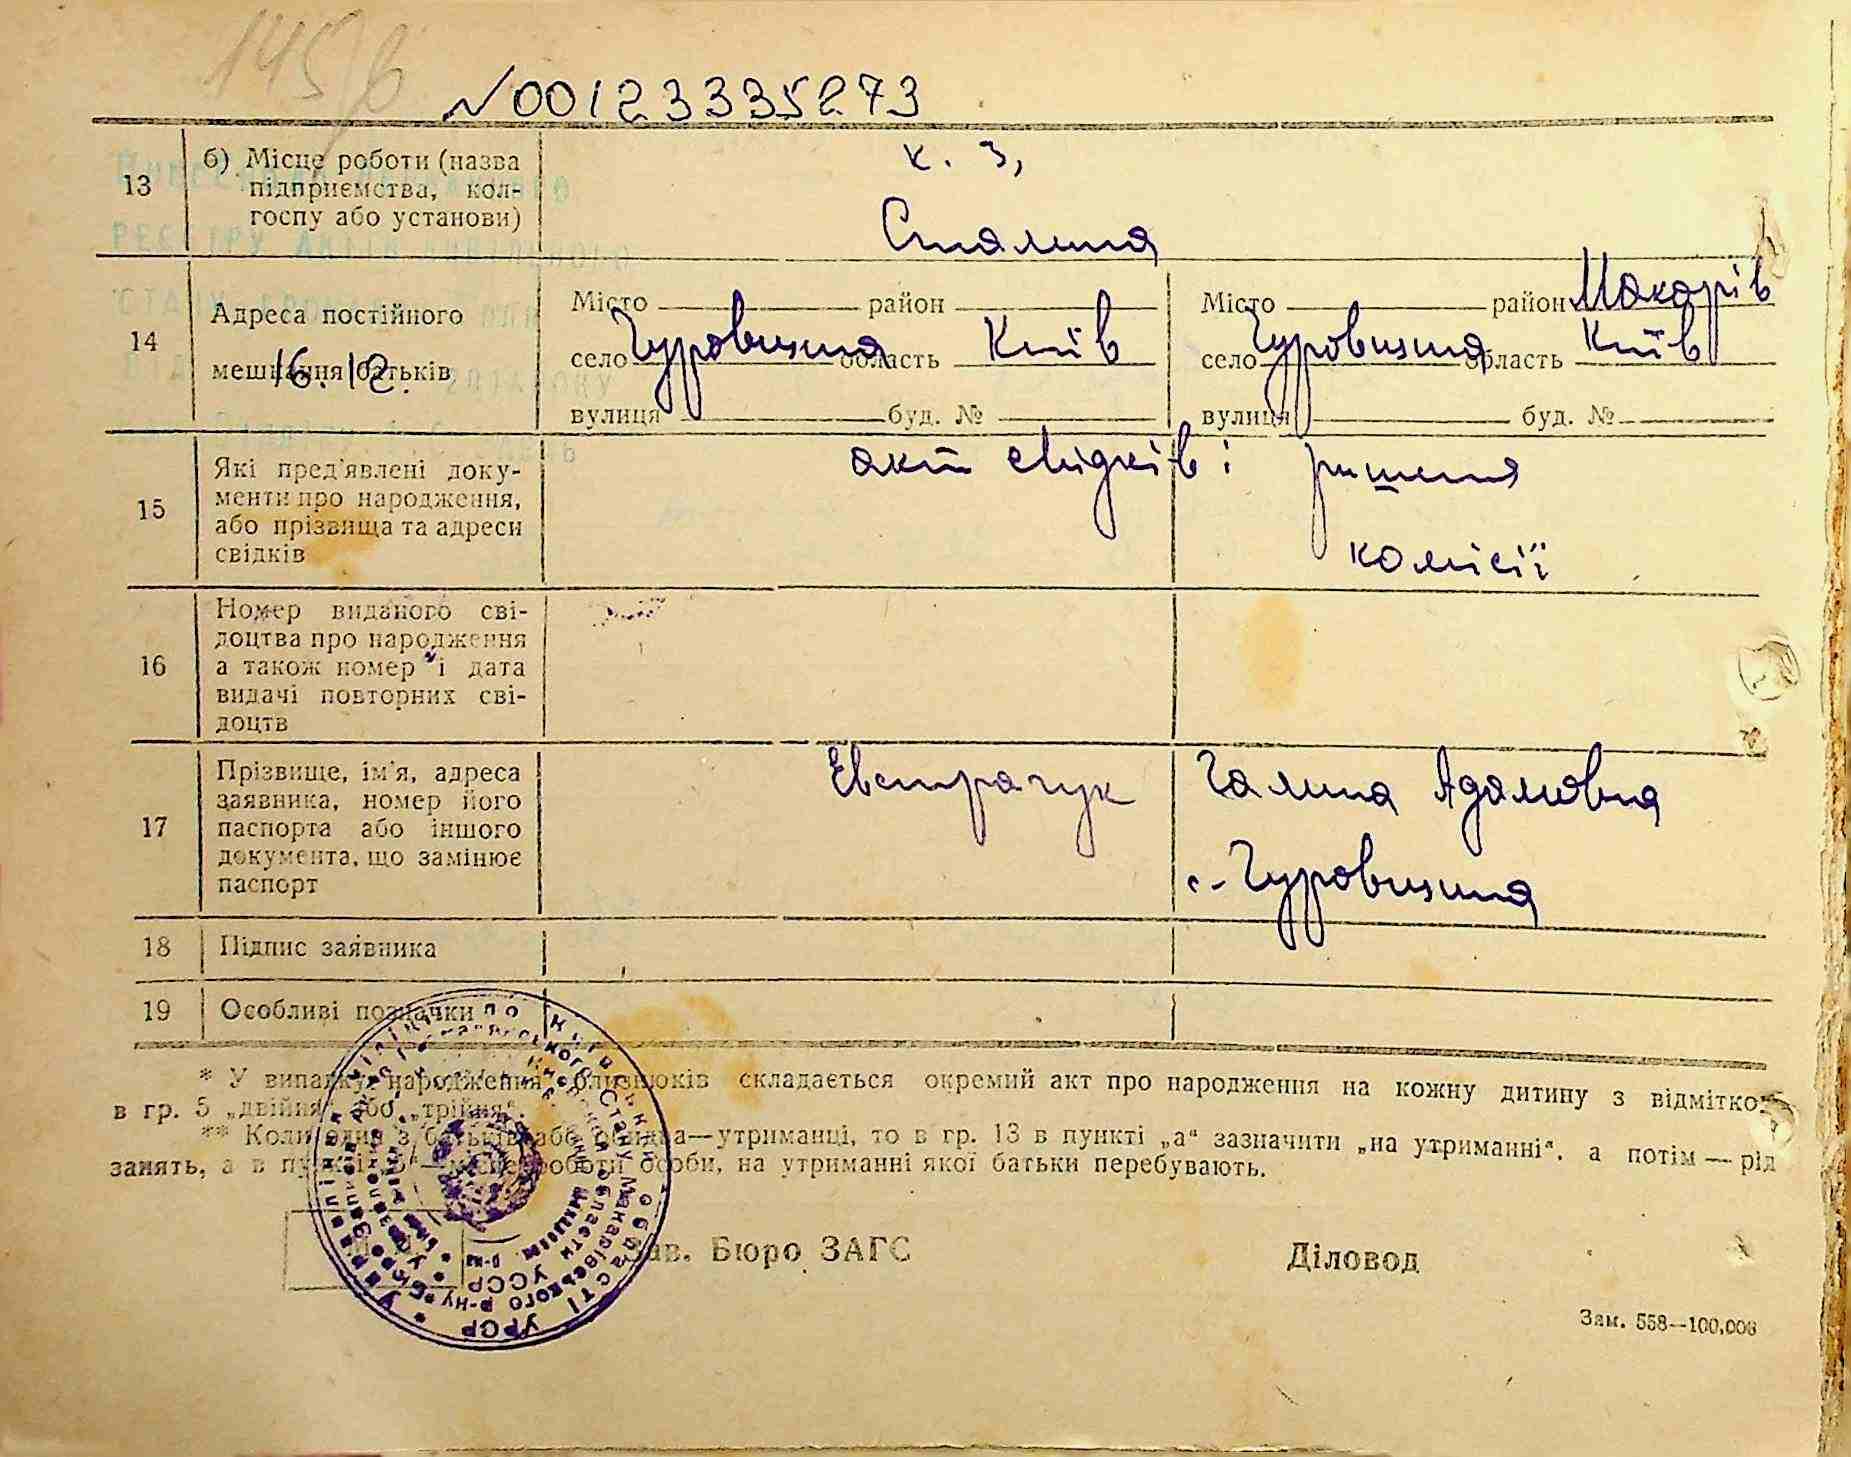 145
№00123335273
13 б) Місце роботи (назва
підприємства, кол-
госпу або установи)
к. з,
Сталина
14 Адреса постійного
мешкання батьків
16. 12.
Місто район
село Гуровщина область Київ
вулиця буд. №
Місто район Макарів
село Гуровщина область Київ
вулиця буд. №
15 Які пред'явлені доку-
менти про народження,
або прізвища та адреси
свідків
акт свідків і рішення
комісії
16 Номер виданого сві-
доцтва про народження
а також номер і дата
видачі повторних сві-
доцтв
17 Прізвище, ім'я, адреса
заявника, номер його
паспорта або іншого
документа, що замінює
паспорт
Евстрачук Галина Адамовна
с. Гуровщина
18 Підпис заявника
19 Особливі позначки
* У випадку народження близнюків складається окремий акт про народження на кожну дитину з відміткою
в гр. 5 „двійня“ або „трійня“.
** Коли один з батьків або обидва—утриманці, то в гр. 13 в пункті „а“ зазначити „на утриманні“, а потім — рід
занять, а в пункті „б“—місце роботи особи, на утриманні якої батьки перебувають.
Зав. Бюро ЗАГС Діловод
Зам. 558—100,000